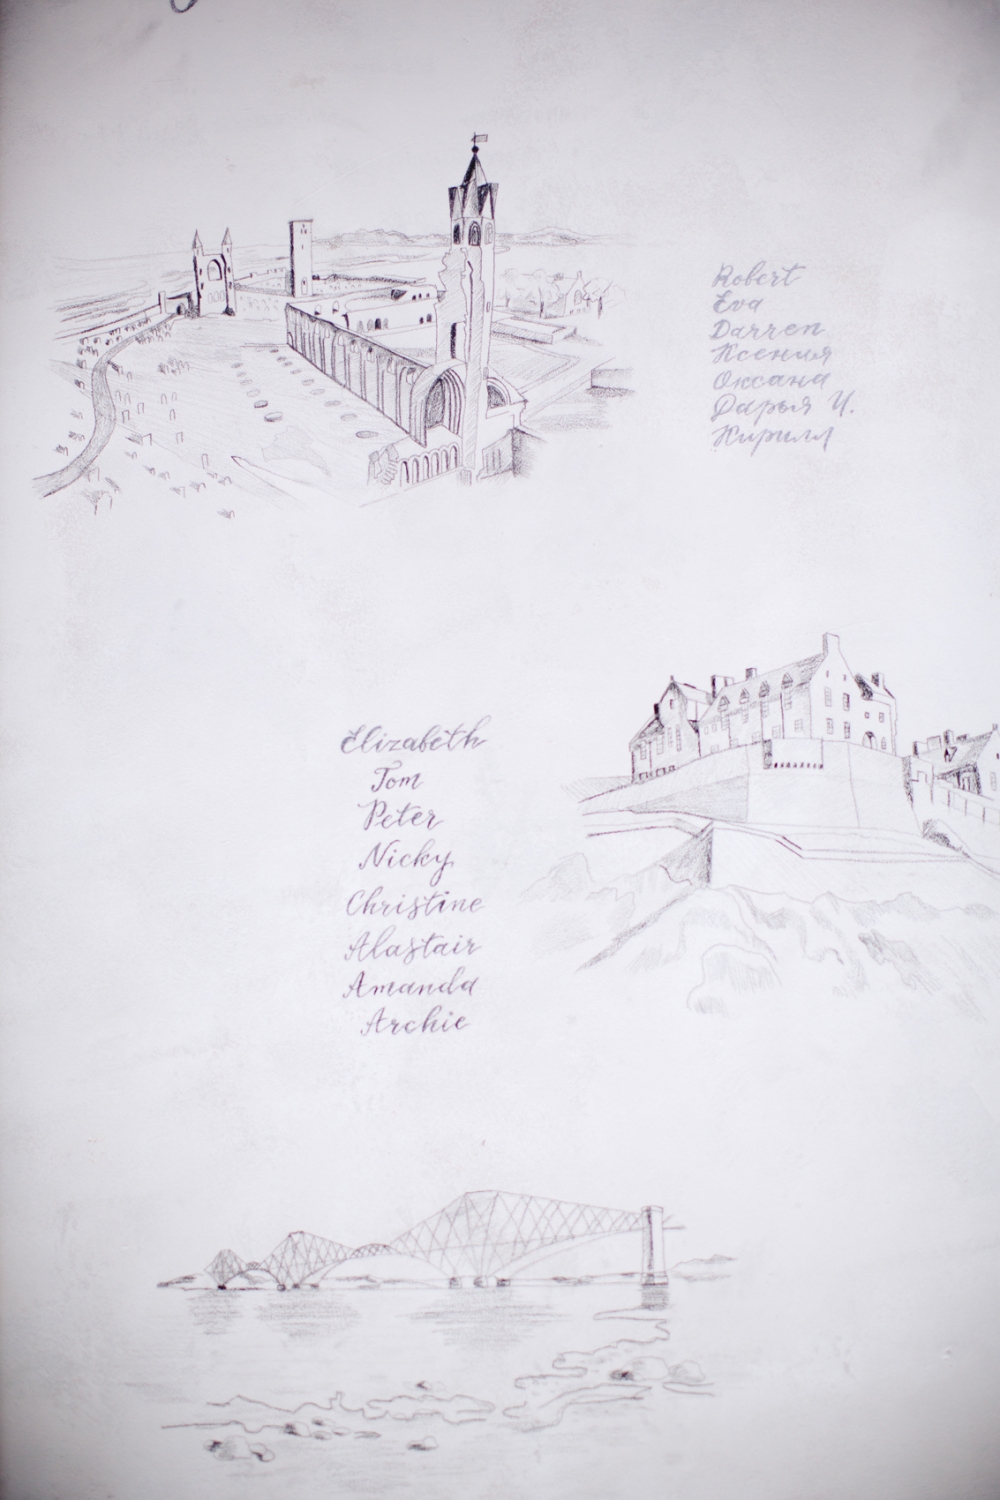 Robert
Eva
Darren
Ксения
Оксана
Дарья И.
Кирилл
Elizabeth
Tom
Peter
Nicky
Christine
Alastair
Amanda
Archie